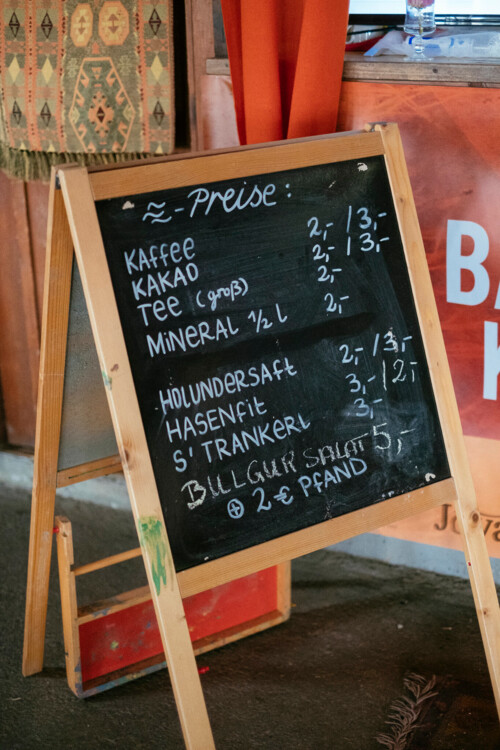 ≈-Preise:
Kaffee 2,- / 3,-
Kakao 2,- / 3,-
Tee (groß) 2,-
Mineral ½ l 2,-
Holundersaft 2,- / 3,-
Hasenfit 3,- / 2,-
S'Trankerl 3,-
Bulgur Salat 5,-
⊕ 2 € Pfand
BA
K